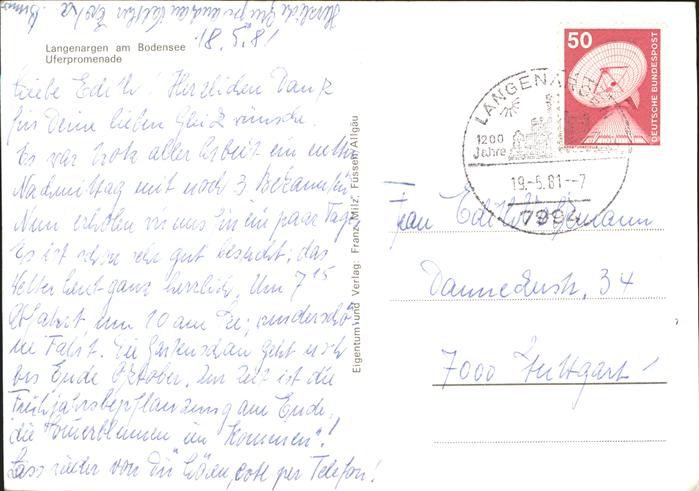 18.5.81
Langenargen am Bodensee
Uferpromenade
Liebe Edith! Herzlichen Dank
für Deine lieben Glückwünsche.
Es war trotz aller Arbeit ein netter
Nachmittag mit noch 3 Bekannten
Nun erholen wir uns hier ein paar Tage
Es ist schon sehr gut besucht; das
Wetter heut ganz herrlich. Um 7 15
Abfahrt um 10 am See; wunderschö
ne Fahrt. Die Gartenschau geht noch
bis Ende Oktober. Zur Zeit ist die
Frühjahrsbepflanzung am Ende,
die Sommerblumen im "Kommen"!
Lass wieder von Dir hören, evtl. per Telefon!
Herzliche Grüsse
Eigentum und Verlag: Franz Milz, Füssen/Allgäu
50
DEUTSCHE BUNDESPOST
LANGENARGEN
1200
Jahre
19.-5.81--7
7994
Frau Edith
Danneckerstr. 34
7000 Stuttgart 1